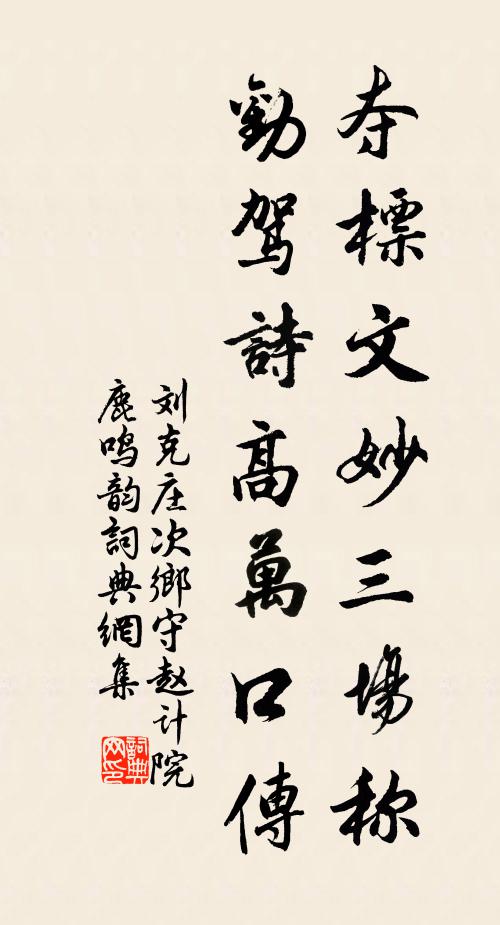 夺標文妙三場称
勸駕詩高萬口傳
刘克庄次鄉守赵计院
鹿鸣韵詞典網集
詞典
网印